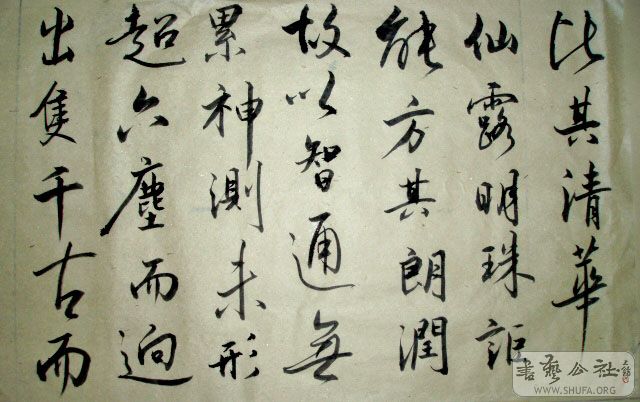 比其清華
仙露明珠詎
能方其朗潤
故以智通無
累神測未形
超六塵而迥
出隻千古而
書藝公社
WWW.SHUFA.ORG